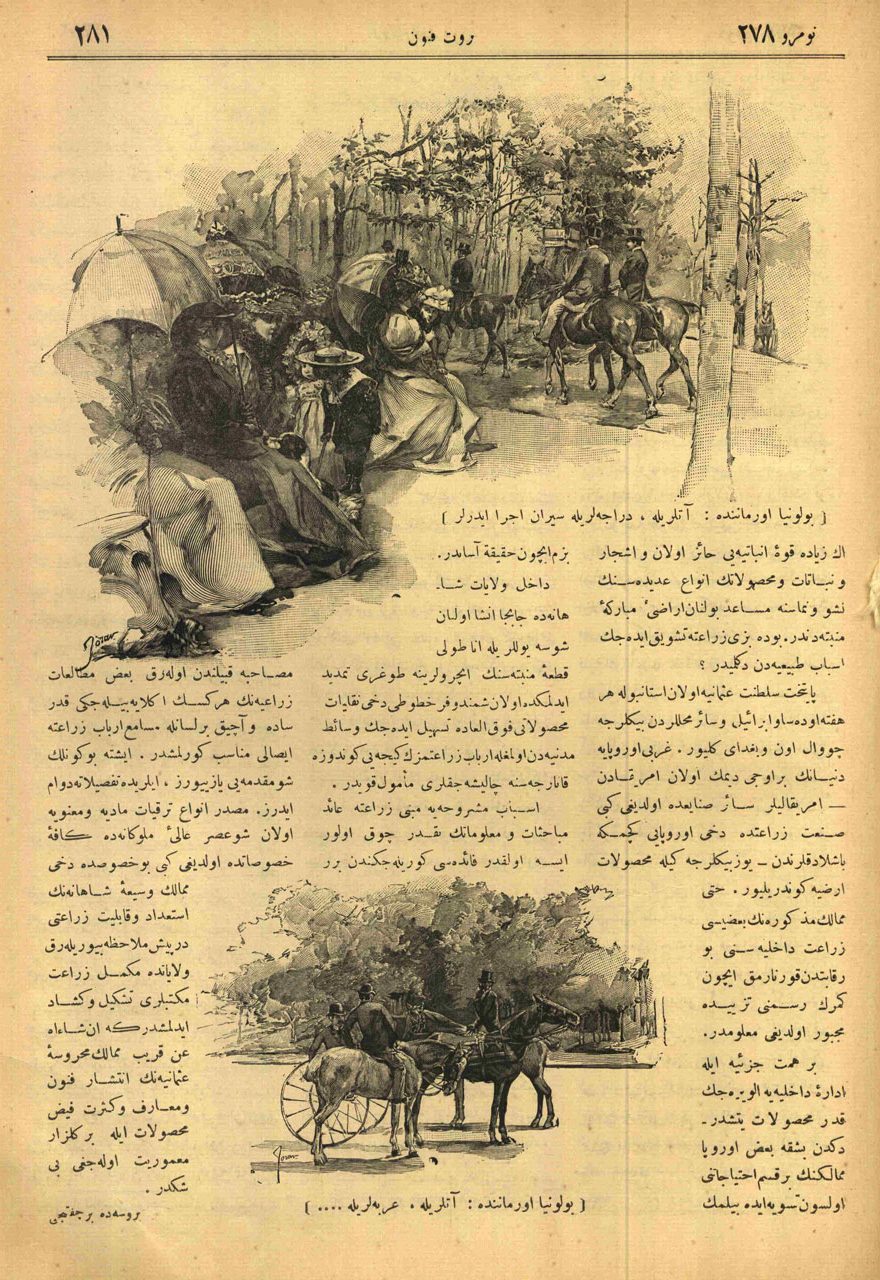 نومرو ۲۷۸
ثروت فنون
۲۸۱
( بولونيا اورماننده : آتلريله ، دراجه‌لريله سيران اجرا ايدرلر )
اك زياده قوۀ انباتيه‌يى حائز اولان و اشجار
و نباتات و محصولاتك انواع عديده‌سنك
نشو و نماسنه مساعد بولنان اراضئ مباركۀ
منبته‌دندر. بوده بزى زراعته تشويق ايده‌جك
اسباب طبيعيه‌دن دكلميدر ؟
پايتخت سلطنت عثمانيه اولان استانبوله هر
هفته اوده‌سا و ابرائيل و سائر محللردن بيكلرجه
چووال اون و بغداى كليور . غربى اوروپايه
دنيانك بر اوجى ديمك اولان امريقادن
— امريقاليلر سائر صنايعده اولديغى كبى
صنعت زراعتده دخى اوروپايى كچمكه
باشلادقلرندن — يوز بيكلرجه كيله محصولات
ارضيه كوندريليور . حتى
ممالك مذكوره‌نك بعضيسى
زراعت داخليه‌سنى بو
رقابتدن قورتارمق ايچون
كمرك رسمنى تزييده
مجبور اولديغى معلومدر.
بر همت جزئيه ايله
ادارۀ داخليه‌يه الويره‌جك
قدر محصولات يتشدر-
دكدن بشقه بعض اوروپا
ممالكنك بر قسم احتياجاتى
اولسون تسويه ايده بيلمك
بزم ايچون حقيقة آساندر.
داخل ولايات شا-
هانه‌ده جابجا انشا اولنان
شوسه يوللريله اناطولى
قطعۀ منبته‌سنك ايچرولرينه طوغرى تمديد
ايدلمكده اولان شمندوفر خطوطى دخى نقليات
محصولاتى فوق العاده تسهيل ايده‌جك وسائط
مدنيه‌دن اولمغله ارباب زراعتمزك كيجه‌يى كوندوزه
قاتارجه‌سنه چاليشه‌جقلرى مأمول قويدر .
اسباب مشروحه‌يه مبنى زراعته عائد
مباحثات و معلوماتك نقدر چوق اولور
ايسه اولقدر فائده‌سى كوريله‌جكندن برر
مصاحبه قبيلندن اوله‌رق بعض مطالعات
زراعيه‌نك هركسك اكلايه بيله‌جكى قدر
ساده و آچيق بر لسانله مسامع ارباب زراعته
ايصالى مناسب كورلمشدر . ايشته بوكونلك
شو مقدمه‌يى يازييورز ، ايلريده تفصيلاته دوام
ايدرز. مصدر انواع ترقيات ماديه و معنويه
اولان شو عصر عالئ ملوكانه‌ده كافۀ
خصوصاتده اولديغى كبى بو خصوصده دخى
ممالك وسيعۀ شاهانه‌نك
استعداد و قابليت زراعتى
درپيش ملاحظه بيوريله‌رق
ولاياتده مكمل زراعت
مكتبلرى تشكيل و كشاد
ايدلمشدر كه ان شاءاه
عن قريب ممالك محروسۀ
عثمانيه‌نك انتشار فنون
و معارف و كثرت فيض
محصولات ايله بر كلزار
معموريت اوله‌جغى بى
شكدر .
بروسه‌ده بر چفتجى
( بولونيا اورماننده : آتلريله ، عربه‌لريله .... )